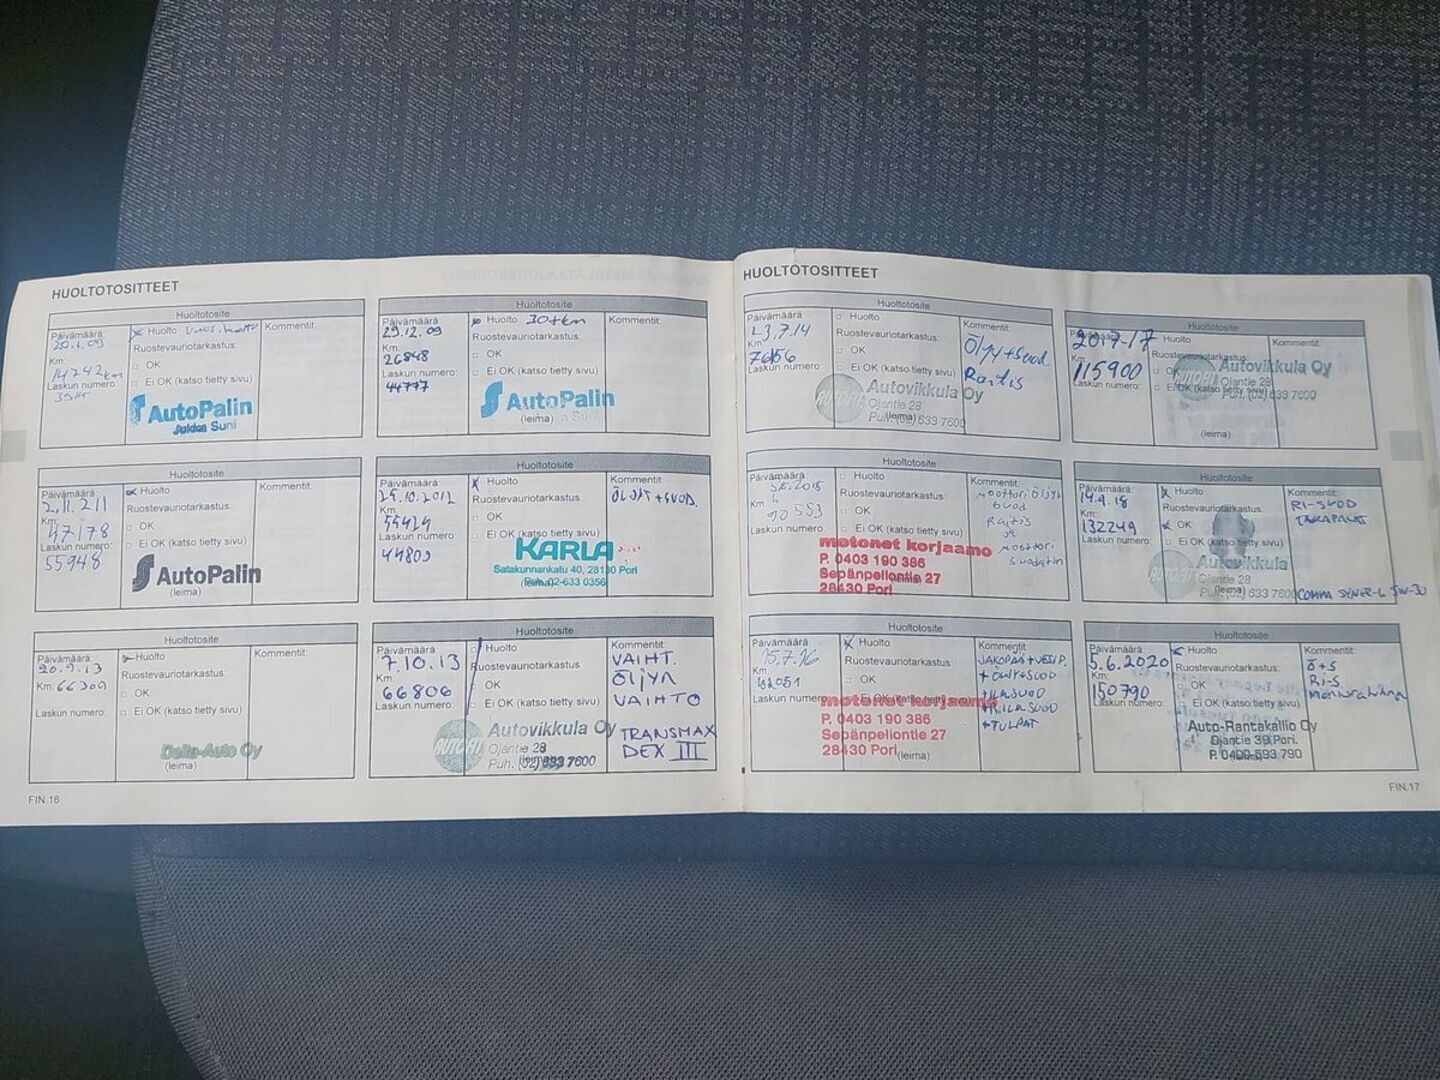 HUOLTOTOSITTEET
Huoltotosite
Päivämäärä:
Huolto
Km:
14742km
Laskun numero:
Ruostevauriotarkastus:
OK
Ei OK (katso tietty sivu)
Kommentit:
AutoPalin
Jukka Suni
Huoltotosite
Päivämäärä:
29.12.09
Huolto 30tkm
Km:
26848
Laskun numero:
44777
Ruostevauriotarkastus:
OK
Ei OK (katso tietty sivu)
Kommentit:
AutoPalin
(leima)
Huoltotosite
Päivämäärä:
2.11.211
Huolto
Km:
47178
Laskun numero:
55948
Ruostevauriotarkastus:
OK
Ei OK (katso tietty sivu)
Kommentit:
AutoPalin
(leima)
Huoltotosite
Päivämäärä:
25.10.2012
Huolto
Km:
55424
Laskun numero:
44803
Ruostevauriotarkastus:
OK
Ei OK (katso tietty sivu)
Kommentit:
ÖLJYT+SUOD.
KARLA
Satakunnankatu 40, 28130 Pori
Puh. 02-633 0356
(leima)
Huoltotosite
Päivämäärä:
20.9.13
Huolto
Km: 66300
Laskun numero:
Ruostevauriotarkastus:
OK
Ei OK (katso tietty sivu)
Kommentit:
Delta-Auto Oy
(leima)
Huoltotosite
Päivämäärä:
7.10.13
Huolto
Km:
66806
Laskun numero:
Ruostevauriotarkastus:
OK
Ei OK (katso tietty sivu)
Kommentit:
VAIHT.
ÖLJYN
VAIHTO
TRANSMAX
DEX III
Autovikkula Oy
Ojantie 28
Puh. (02) 633 7600
(leima)
FIN.16
HUOLTOTOSITTEET
Huoltotosite
Päivämäärä:
23.7.14
Huolto
Km:
76156
Laskun numero:
Ruostevauriotarkastus:
OK
Ei OK (katso tietty sivu)
Kommentit:
Öljy+suod
Raitis
Autovikkula Oy
Ojantie 28
Puh. (02) 633 7600
(leima)
Huoltotosite
Päivämäärä:
20.7.17
Huolto
Km:
115900
Laskun numero:
Ruostevauriotarkastus:
OK
Ei OK (katso tietty sivu)
Kommentit:
Autovikkula Oy
Ojantie 28
Puh. (02) 633 7600
(leima)
Huoltotosite
Päivämäärä:
Huolto
Km
90553
Laskun numero:
Ruostevauriotarkastus:
OK
Ei OK (katso tietty sivu)
Kommentit:
moottoriöljyt
suod
Raitis
moottori
suodatin
motonet korjaamo
P. 0403 190 386
Sepänpellontie 27
28430 Pori
(leima)
Huoltotosite
Päivämäärä:
19.4.18
Huolto
Km:
132249
Laskun numero:
Ruostevauriotarkastus:
OK
Ei OK (katso tietty sivu)
Kommentit:
RI-SUOD
TAKAPALAT
COMMA SYNER-G 5W-30
Autovikkula
Ojantie 28
Puh. (02) 633 7600
(leima)
Huoltotosite
Päivämäärä:
15.7.16
Huolto
Km:
102051
Laskun numero:
Ruostevauriotarkastus:
OK
Ei OK (katso tietty sivu)
Kommentit:
JAKOPÄÄ+VESIP.
+ÖLJYT+SUOD
+ILMASUOD
+R.ILMASUOD
+TULPAT
motonet korjaamo
P. 0403 190 386
Sepänpellontie 27
28430 Pori
(leima)
Huoltotosite
Päivämäärä:
5.6.2020
Huolto
Km:
150790
Laskun numero:
Ruostevauriotarkastus:
OK
Ei OK (katso tietty sivu)
Kommentit:
Ö+S
Ri-S
Moniurahihna
Auto-Rantakallio Oy
Ojantie 39 Pori.
P. 0400-593 790
(leima)
FIN.17